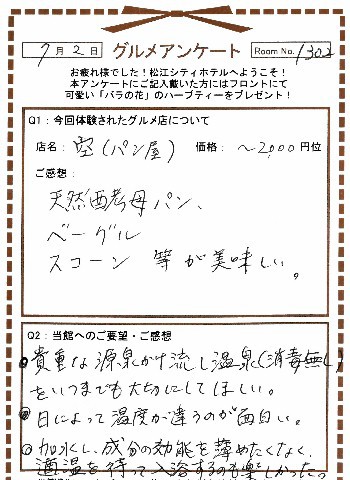 7月2日 グルメアンケート Room No. 1302
お疲れ様でした！松江シティホテルへようこそ！
本アンケートにご記入戴いた方にはフロントにて
可愛い「バラの花」のハーブティーをプレゼント！
Q1：今回体験されたグルメ店について
店名：空（パン屋） 価格：～2,000円位
ご感想：
天然酵母パン、
ベーグル
スコーン 等が美味しい。
Q2：当館へのご要望・ご感想
①貴重な源泉かけ流し温泉（消毒無し）
をいつまでも大切にしてほしい。
②日によって温度が違うのが面白い。
③加水し、成分の効能を薄めたくなく、
適温を待って入浴するのも楽しかった。